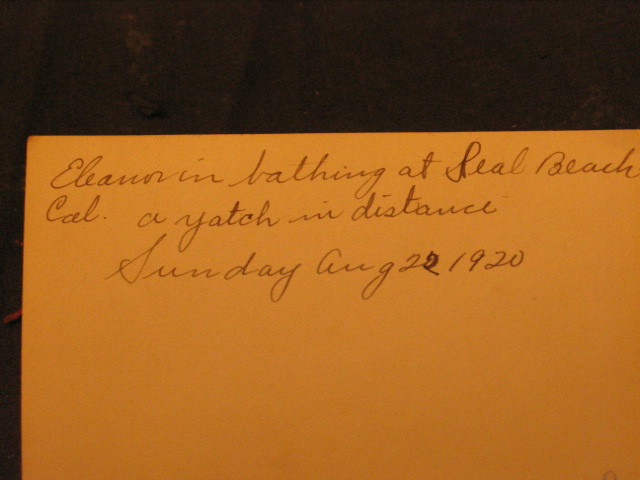 Eleanor in bathing at Seal Beach
Cal. a yatch in distance
Sunday Aug 22 1920